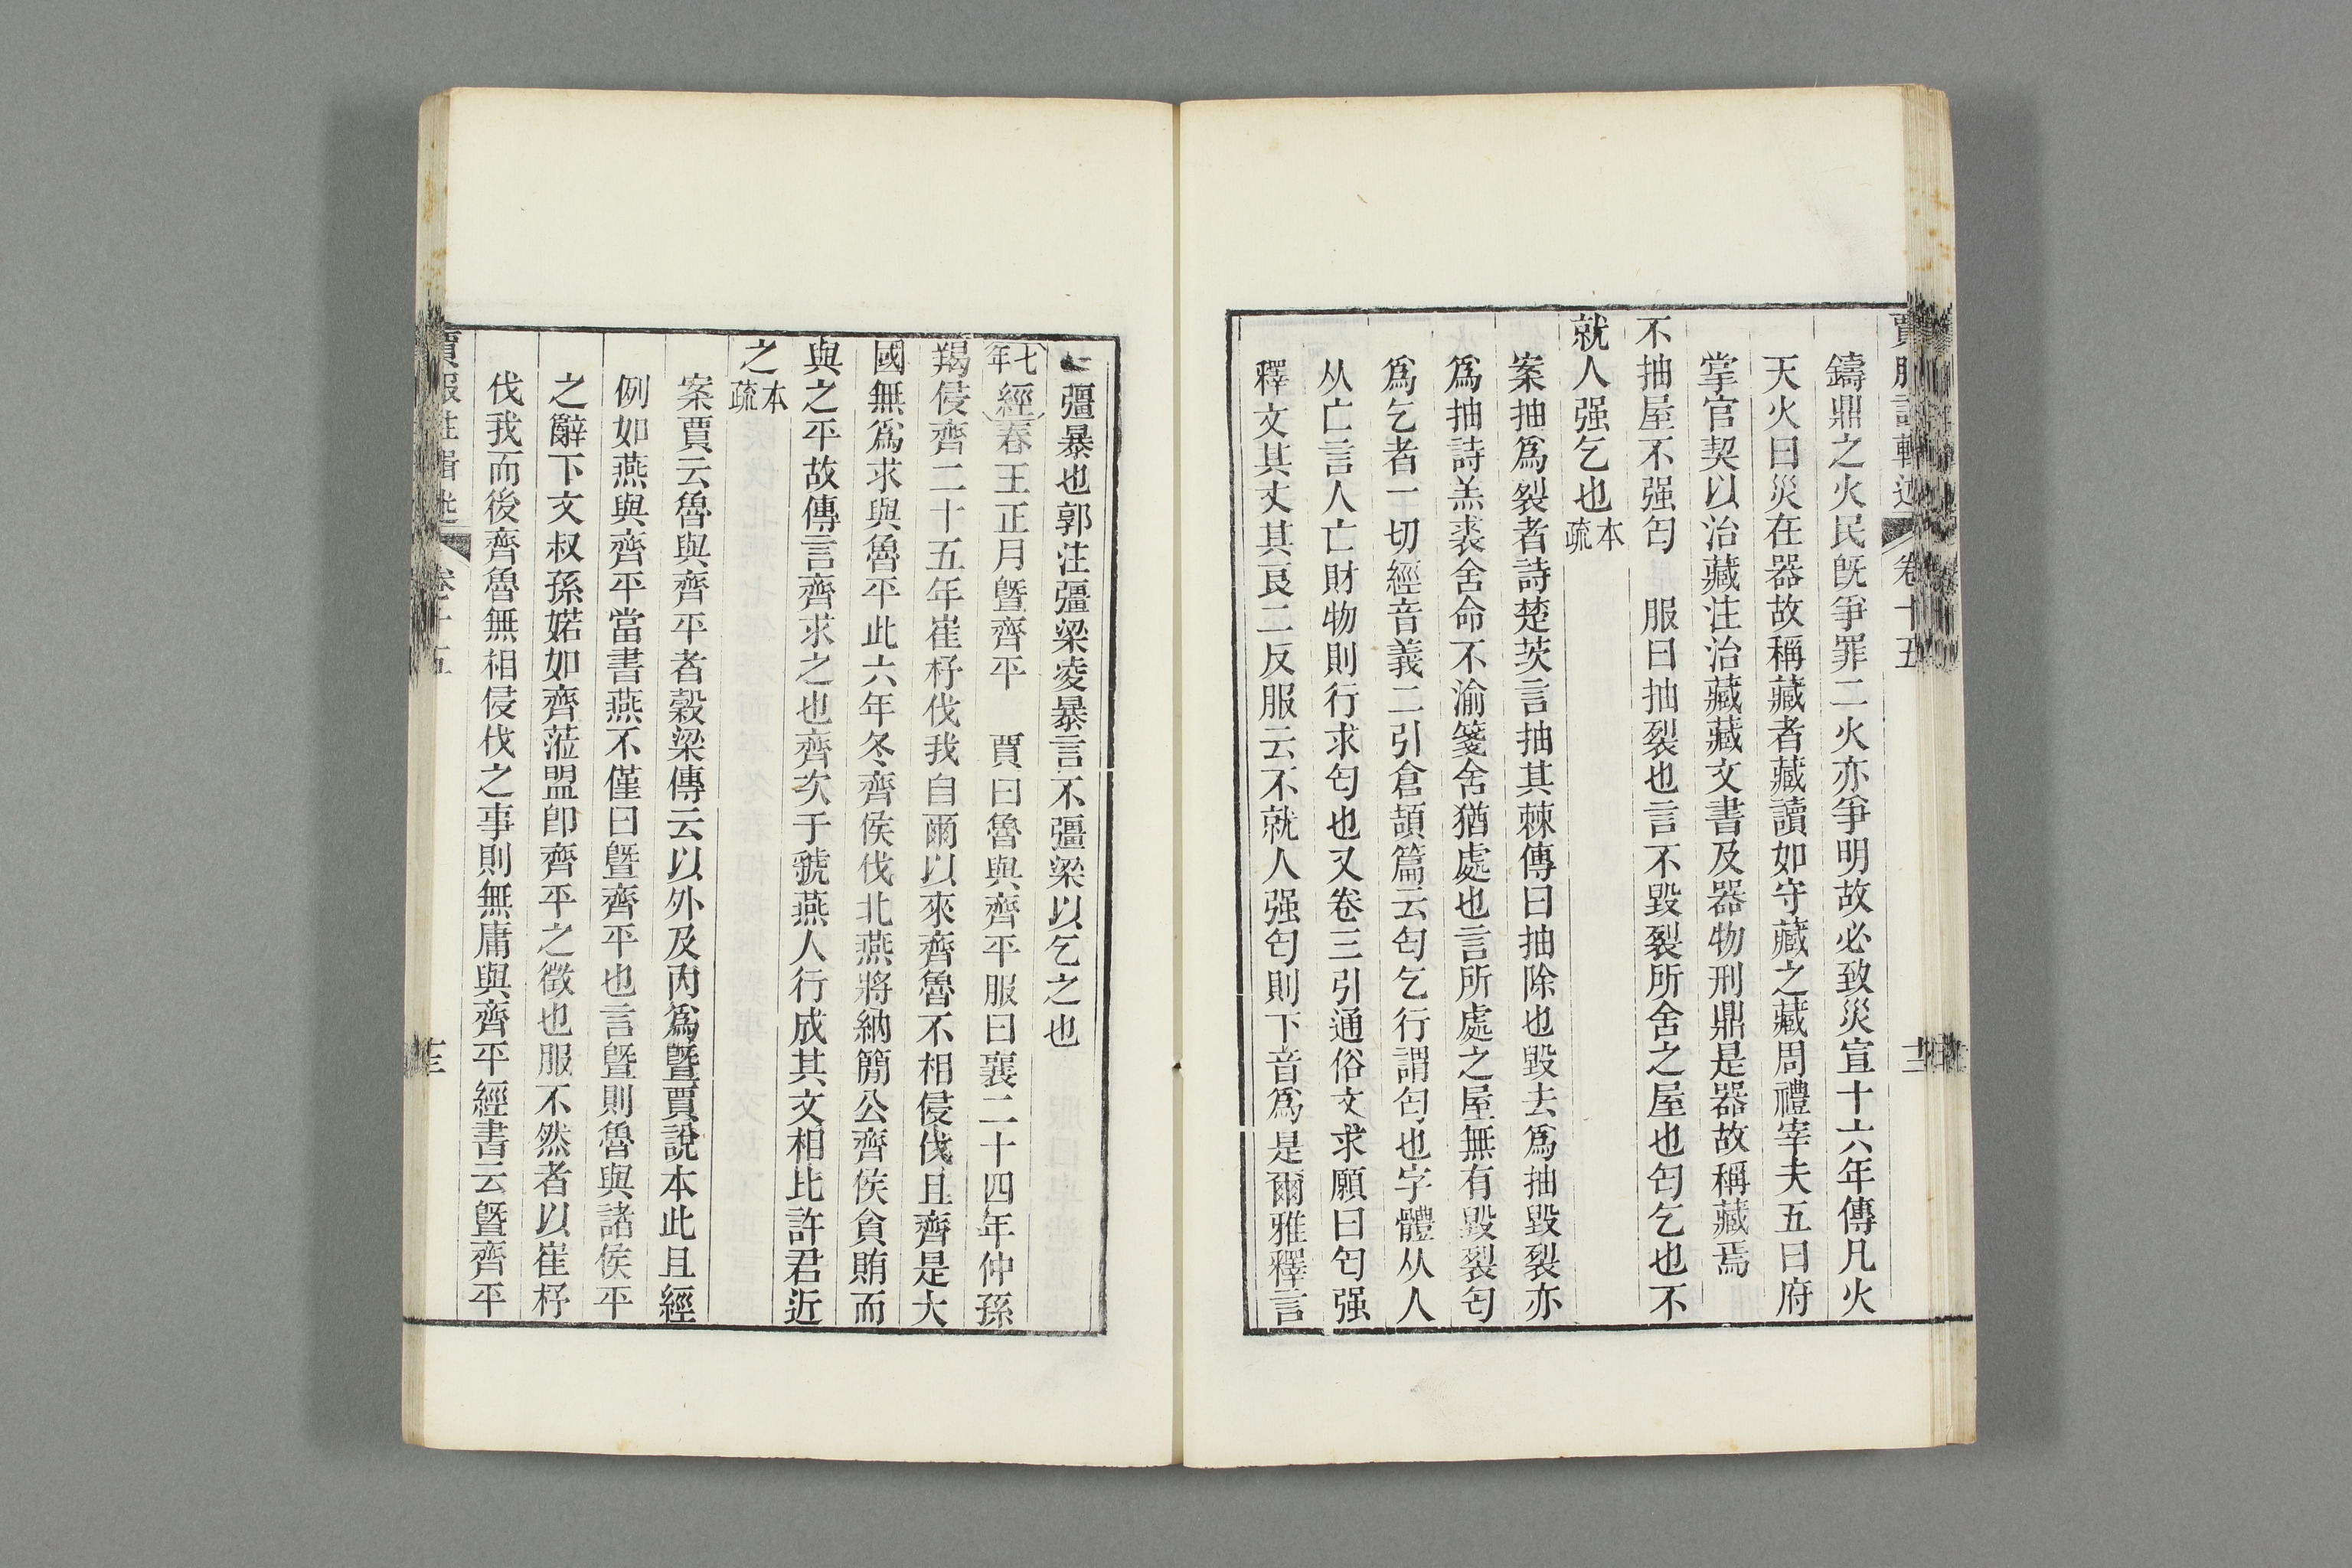 賈服註輯述 卷十五 十二
鑄鼎之火民既爭罪二火亦爭明故必致災宣十六年傳凡火
天火曰災在器故稱藏者藏讀如守藏之藏周禮宰夫五曰府
掌官契以治藏注治藏藏文書及器物刑鼎是器故稱藏焉
不抽屋不强匄 服曰抽裂也言不毀裂所舍之屋也匄乞也不
就人强乞也本疏
案抽爲裂者詩楚茨言抽其棘傳曰抽除也毀去爲抽毀裂亦
爲抽詩羔裘舍命不渝箋舍猶處也言所處之屋無有毀裂匄
爲乞者一切經音義二引倉頡篇云匄乞行謂匄也字體从人
从亡言人亡財物則行求匄也又卷三引通俗文求願曰匄强
釋文其丈其良二反服云不就人强匄則下音爲是爾雅釋言
彊暴也郭注彊梁凌暴言不彊梁以乞之也
七年經春王正月暨齊平 賈曰魯與齊平服曰襄二十四年仲孫
羯侵齊二十五年崔杼伐我自爾以來齊魯不相侵伐且齊是大
國無爲求與魯平此六年冬齊侯伐北燕將納簡公齊侯貪賄而
與之平故傳言齊求之也齊次于虢燕人行成其文相比許君近
之本疏
案賈云魯與齊平者穀梁傳云以外及內爲暨賈說本此且經
例如燕與齊平當書燕不僅曰暨齊平也言暨則魯與諸侯平
之辭下文叔孫婼如齊蒞盟即齊平之徵也服不然者以崔杼
伐我而後齊魯無相侵伐之事則無庸與齊平經書云暨齊平
賈服註輯述 卷十五 十三